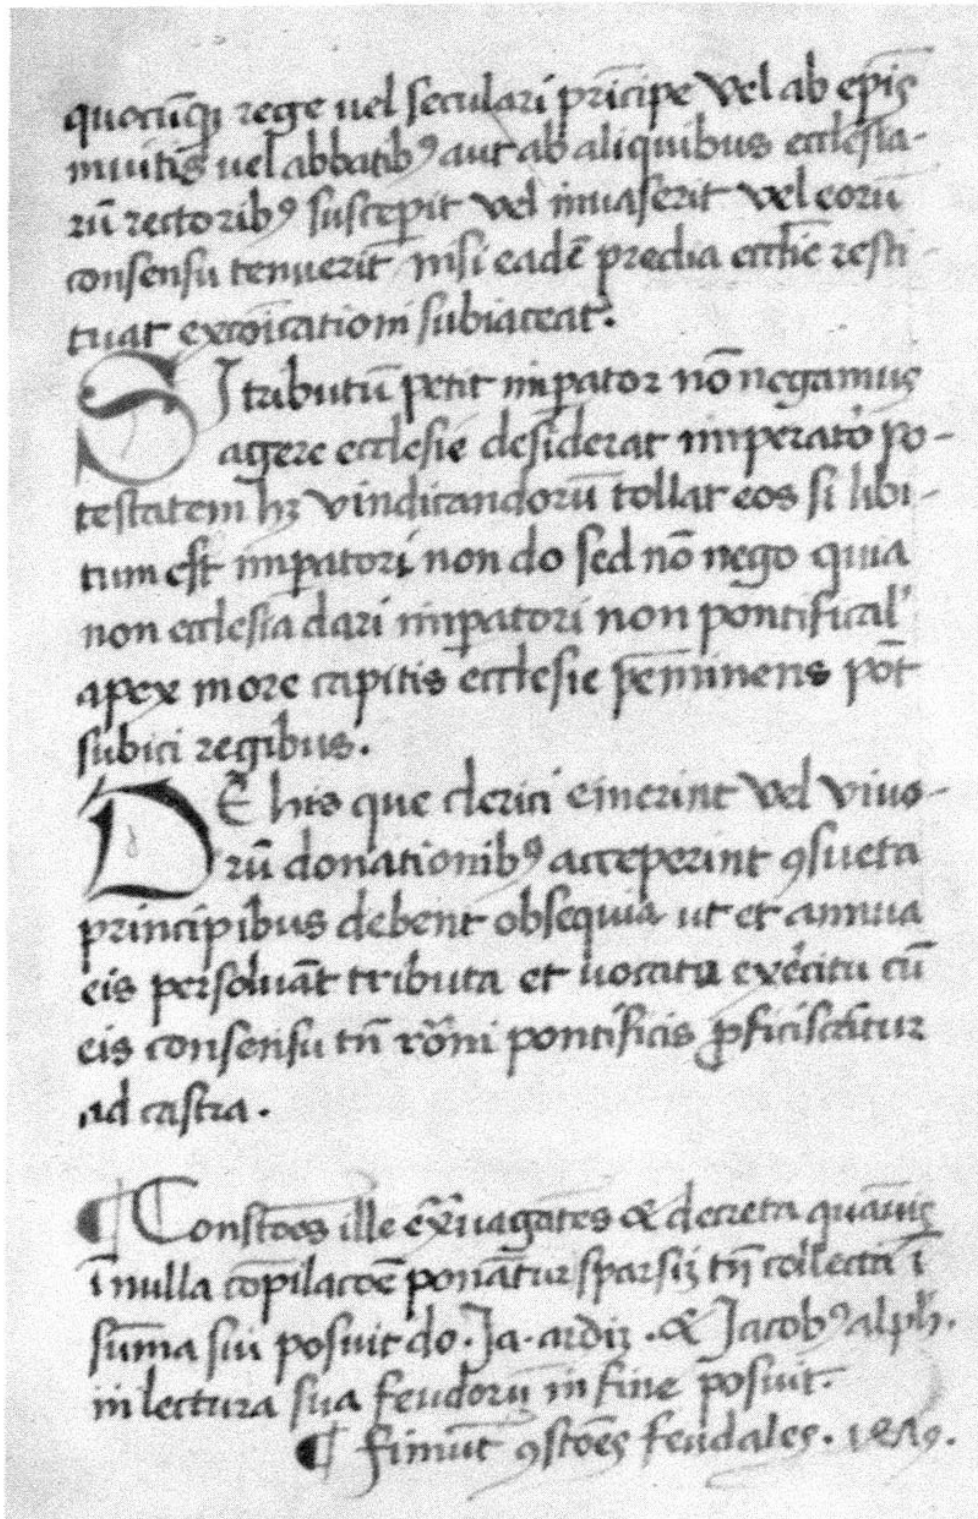 quocūqꝫ rege uel seculari prīcipe vel ab ep̄is
inuitis uel abbatibꝰ aut ab aliquibus ecclesia-
rū rectoribꝰ susceperit vel inuaserit vel eorū
consensu tenuerit nisi eadē predia eccl̄ie resti-
tuat excōicationi subiaceat.
SI tributū petit imꝑator nō negamus
agere ecclesie desiderat imperator po-
testatem hꝫ vindicandorū tollat eos si libi-
tum est imꝑatori non do sed nō nego quia
non ecclesia dari imꝑatori non pontifical'
apex more capitis ecclesie p̄eminens pōt
subici regibus.
DE his que clerici emerint vel viuo-
rū donationibꝰ acceperint ꝯsueta
principibus debent obsequia ut et annua
eis persoluāt tributa et uocata exercitu cū
eis consensu tn̄ rōni pontificis ꝓficiscātur
ad castra.
¶ Constōes ille ex̄uagātes & decreta quāuis
ī nulla cōpilacōe ponātur sparsiꝫ tn̄ collecta ī
sūma sui posuit do. Ja. ardiꝫ. & Jacobꝰ alph.
in lectura sua feudorū in fine posuit.
¶ finiūt ꝯstōes feudales.